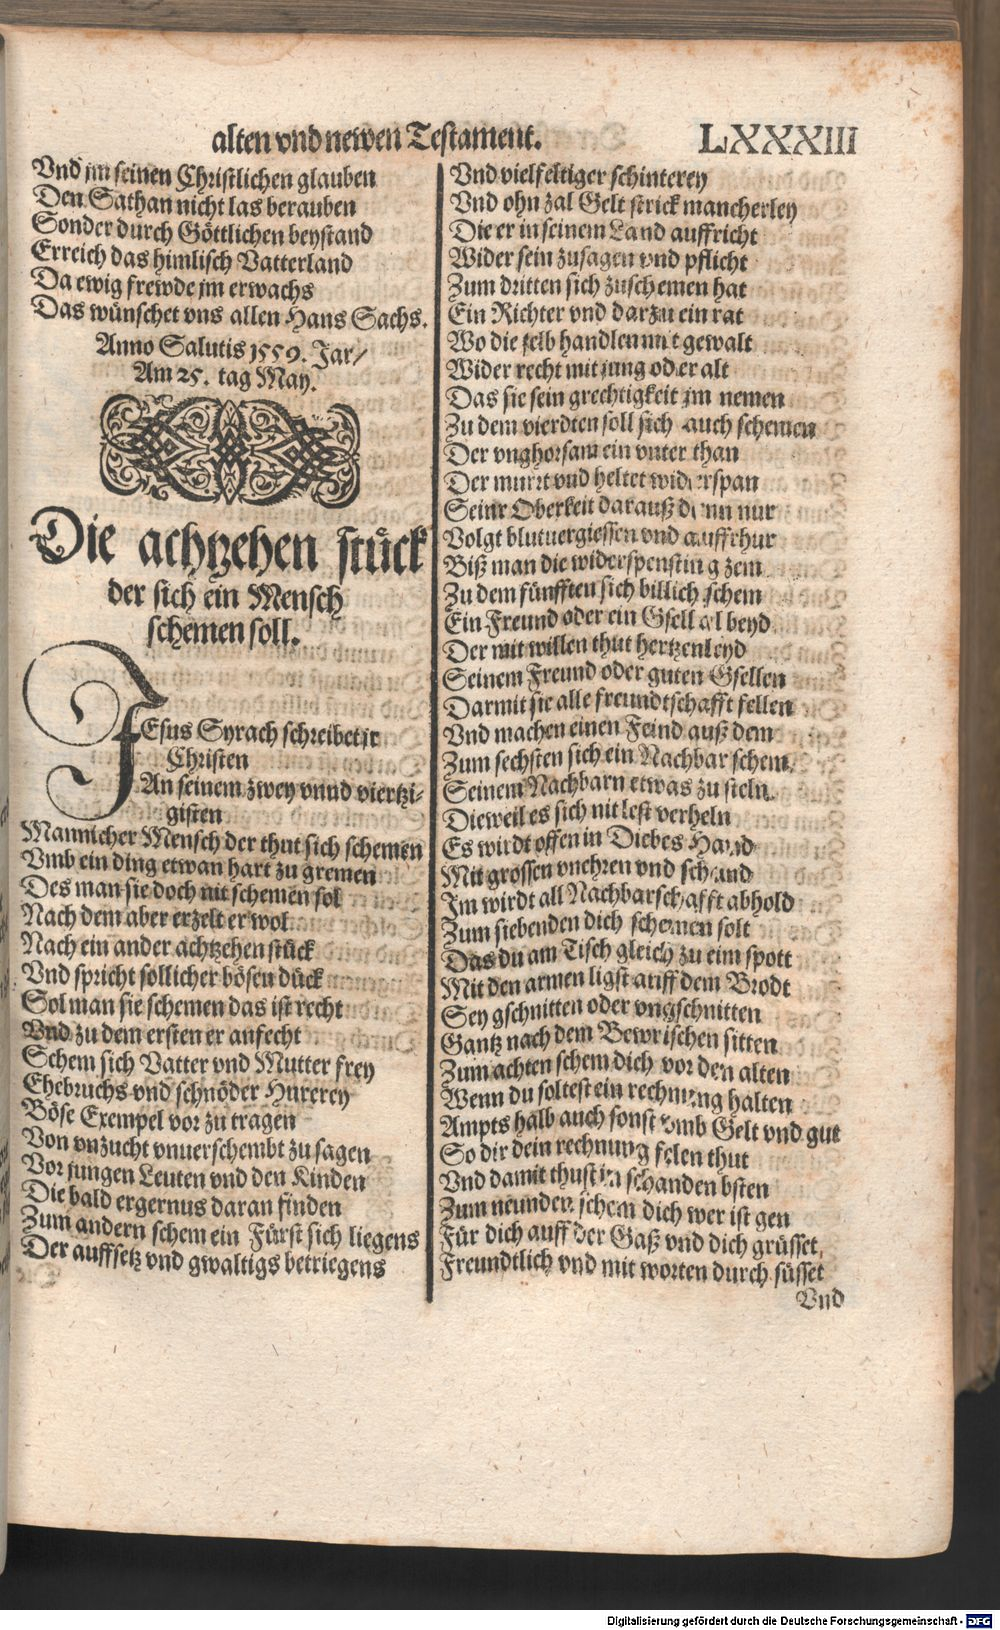 alten vnd newen Testament. LXXXIII
Vnd jm seinen Christlichen glauben
Den Sathan nicht las berauben
Sonder durch Göttlichen beystand
Erreich das himlisch Vatterland
Da ewig frewde jm erwachs
Das wünschet vns allen Hans Sachs.
Anno Salutis 1559. Jar/
Am 25. tag May.
Die achtzehen stück
der sich ein Mensch
schemen soll.
JEsus Syrach schreibet jr
Christen
An seinem zwey vnnd viertzi-
gisten
Mannicher Mensch der thut sich schemen
Vmb ein ding etwan hart zu gremen
Des man sie doch nit schemen sol
Nach dem aber erzelt er wol
Nach ein ander achtzehen stück
Vnd spricht sollicher bösen dück
Sol man sie schemen das ist recht
Vnd zu dem ersten er anfecht
Schem sich Vatter vnd Mutter frey
Ehebruchs vnd schnöder Hurerey
Böse Exempel vor zu tragen
Von vnzucht vnuerschembt zu sagen
Vor jungen Leuten vnd den Kinden
Die bald ergernus daran finden
Zum andern schem ein Fürst sich liegens
Der auffsetz vnd gwaltigs betriegens
Vnd vielfeltiger schinterey
Vnd ohn zal Gelt strick mancherley
Die er in seinem Land auffricht
Wider sein zusagen vnd pflicht
Zum dritten sich zuschemen hat
Ein Richter vnd darzu ein rat
Wo die selb handlen mit gewalt
Wider recht mit jung oder alt
Das sie sein grechtigkeit jm nemen
Zu dem vierdten soll sich auch schemen
Der vnghorsam ein vnter than
Der murrt vnd heltet widerspan
Seinr Oberkeit darauß denn nur
Volgt blutuergiessen vnd auffrhur
Biß man die widerspensting zem
Zu dem fünfften sich billich schem
Ein Freund oder ein Gsell al beyd
Der mit willen thut hertzenleyd
Seinem Freund oder guten Gsellen
Darmit sie alle freundtschafft fellen
Vnd machen einen Feind auß dem
Zum sechsten sich ein Nachbar schem
Seinem Nachbarn etwas zu steln
Dieweil es sich nit lest verheln
Es wirdt offen in Diebes Hand
Mit grossen vnehren vnd schand
Im wirdt all Nachbarschafft abhold
Zum siebenden dich schemen solt
Das du am Tisch gleich zu eim spott
Mit den armen ligst auff dem Brodt
Sey gschnitten oder vngschnitten
Gantz nach dem Bewrischen sitten
Zum achten schem dich vor den alten
Wenn du soltest ein rechnung halten
Ampts halb auch sonst vmb Gelt vnd gut
So dir dein rechnung felen thut
Vnd damit thust in schanden bsten
Zum neunden schem dich wer ist gen
Für dich auff der Gaß vnd dich grüsset
Freundtlich vnd mit worten durch süsset
Vnd
Digitalisierung gefördert durch die Deutsche Forschungsgemeinschaft - DFG